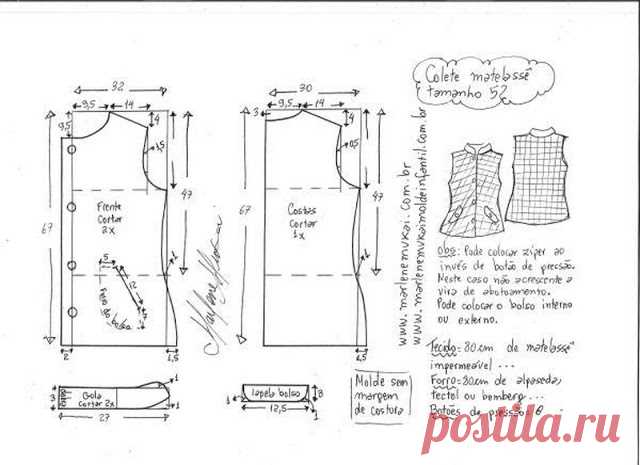 Colete matelassê
tamanho 52
32
9,5
14
4
9,5
1,5
67
47
Frente
Cortar
2x
5
12
7
1
2
1,5
30
9,5
14
3
4
0,5
67
47
Costas
Cortar
1x
1
1,5
Marlene Mukai
www.marlenemukai.com.br
www.marlenemukaimoldeinfantil.com.br
obs: Pode colocar ziper ao
invés de botão de pressão.
Neste caso não acrescente a
vira de abotoamento.
Pode colocar o bolso interno
ou externo.
Tecido = 80 cm de matelassê
impermeável ...
Forro = 80 cm de
tectel ou bemberg...
Botões de pressão = 8
3
Gola
cortar 2x
1
1
27
lapela bolso
1
1
8
12,5
Molde sem
margem
de costura
postila.ru